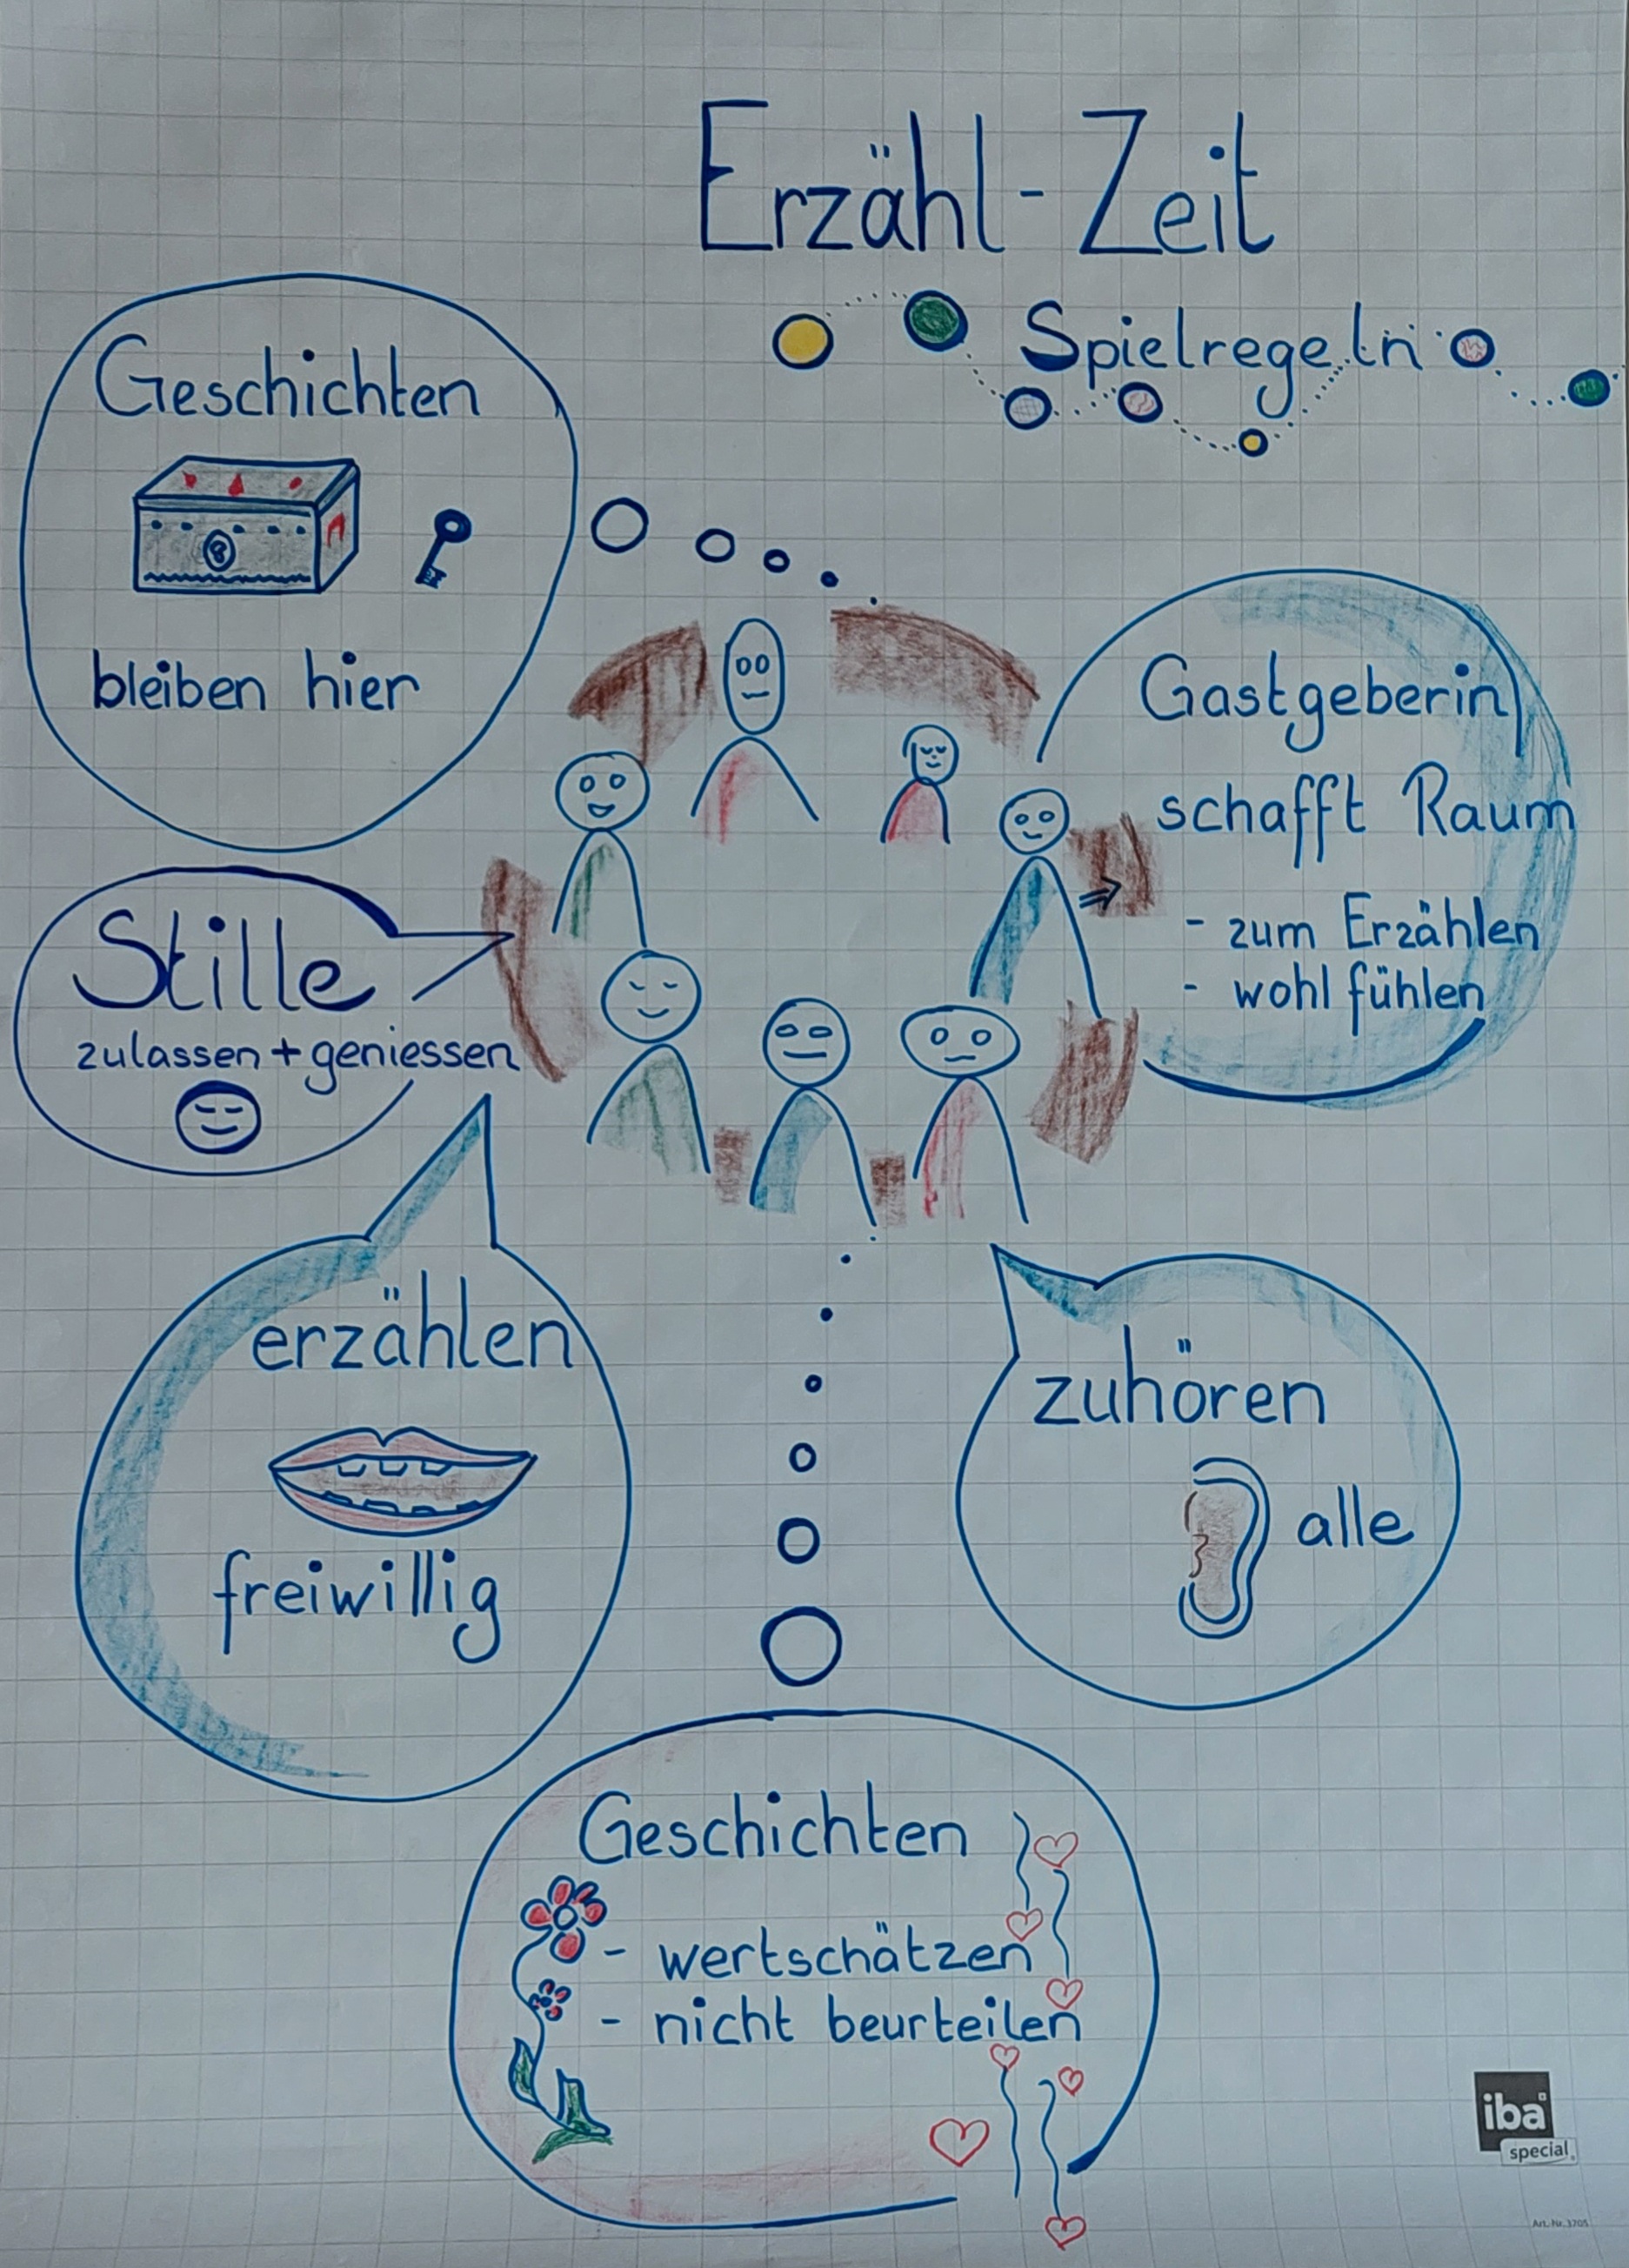 Erzähl-Zeit
Spielregeln
Geschichten
bleiben hier
Gastgeberin
schafft Raum
- zum Erzählen
- wohl fühlen
Stille
zulassen + geniessen
erzählen
freiwillig
zuhören
alle
Geschichten
- wertschätzen
- nicht beurteilen
iba
special
Art.-Nr. 3705